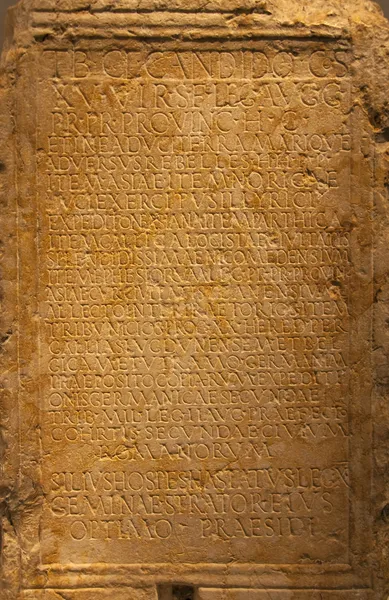 TIB·CL·CANDIDO·COS
XV·VIR·S·F·LEG·AVGG
PR·PR·PROVINC·H·C
ET·IN·EA·DVCI·TERRA·MARIQVE
ADVERSVS·REBELLES·H·H·P·R
ITEM·ASIAE·ITEM·NORICAE
DVCI·EXERCITVS·ILLYRICI
EXPEDITIONE·ASIANA·ITEM·PARTHICA
ITEM·GALLICA·LOGISTAE·CIVITATIS
SPLENDIDISSIMAE·NICOMEDENSIVM
ITEM·EPHESIORVM·LEG·PR·PR·PROVIN
ASIAE·CVR·CIVITATIS·TEANENSIVM
ALLECTO·INTER·PRAETORIOS·ITEM
TRIBVNICIOS·PROC·XX·HERED·PER
GALLIAS·LVGDVNENSEM·ET·BEL
GICAM·ET·VTRAMQ·GERMANIAM
PRAEPOSITO·COPIARVM·EXPEDITI
ONIS·GERMANICAE·SECVNDAE
TRIB·MIL·LEG·II·AVG·PRAEFECT
COHORTIS·SECVNDAE·CIVIVM
ROMANORVM
SILIVS·HOSPES·HASTATVS·LEG·X
GEMINAE·STRATOR·EIVS
OPTIMO PRAESIDI